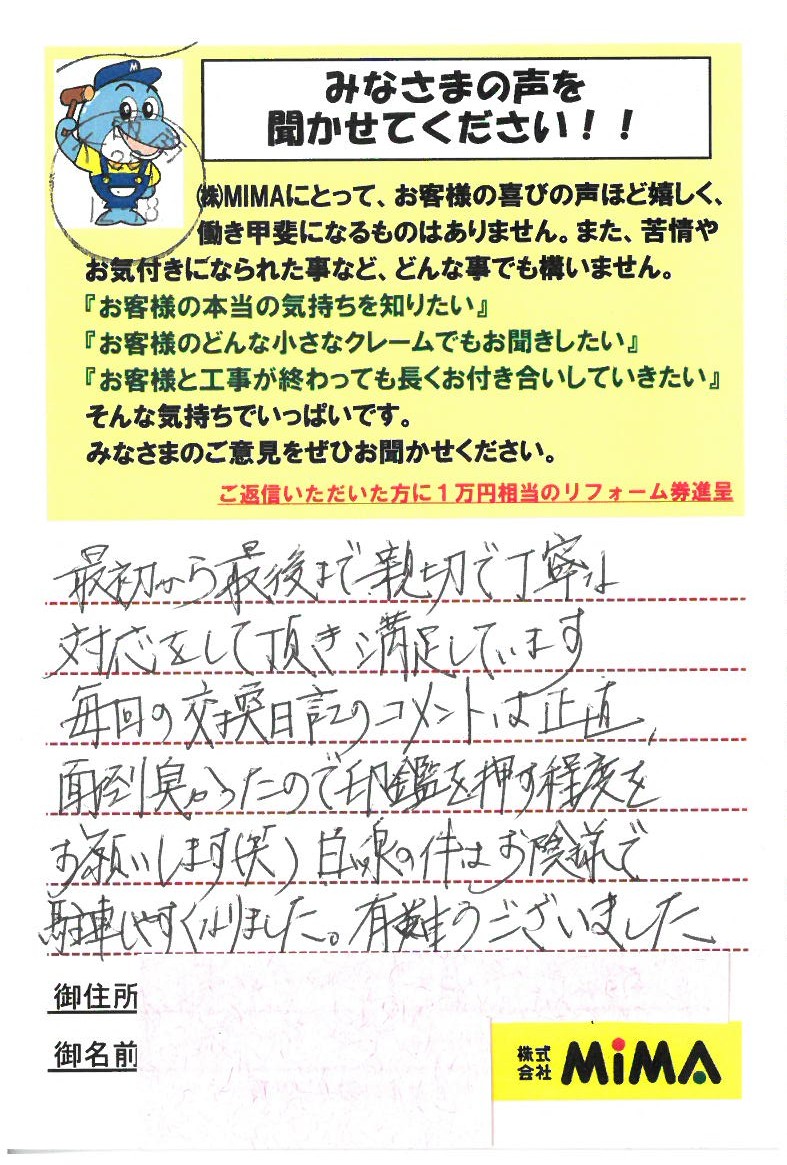 みなさまの声を
聞かせてください！！
㈱MIMAにとって、お客様の喜びの声ほど嬉しく、
働き甲斐になるものはありません。また、苦情や
お気付きになられた事など、どんな事でも構いません。
『お客様の本当の気持ちを知りたい』
『お客様のどんな小さなクレームでもお聞きしたい』
『お客様と工事が終わっても長くお付き合いしていきたい』
そんな気持ちでいっぱいです。
みなさまのご意見をぜひお聞かせください。
ご返信いただいた方に１万円相当のリフォーム券進呈
最初から最後まで親切で丁寧な
対応をして頂き満足しています
毎回の交換日記のコメントは正直、
面倒臭かったので印鑑を押す程度を
お願いします(笑) 白線の件はお陰様で
駐車しやすくなりました。有難うございました
御住所
御名前
株式会社 MiMA